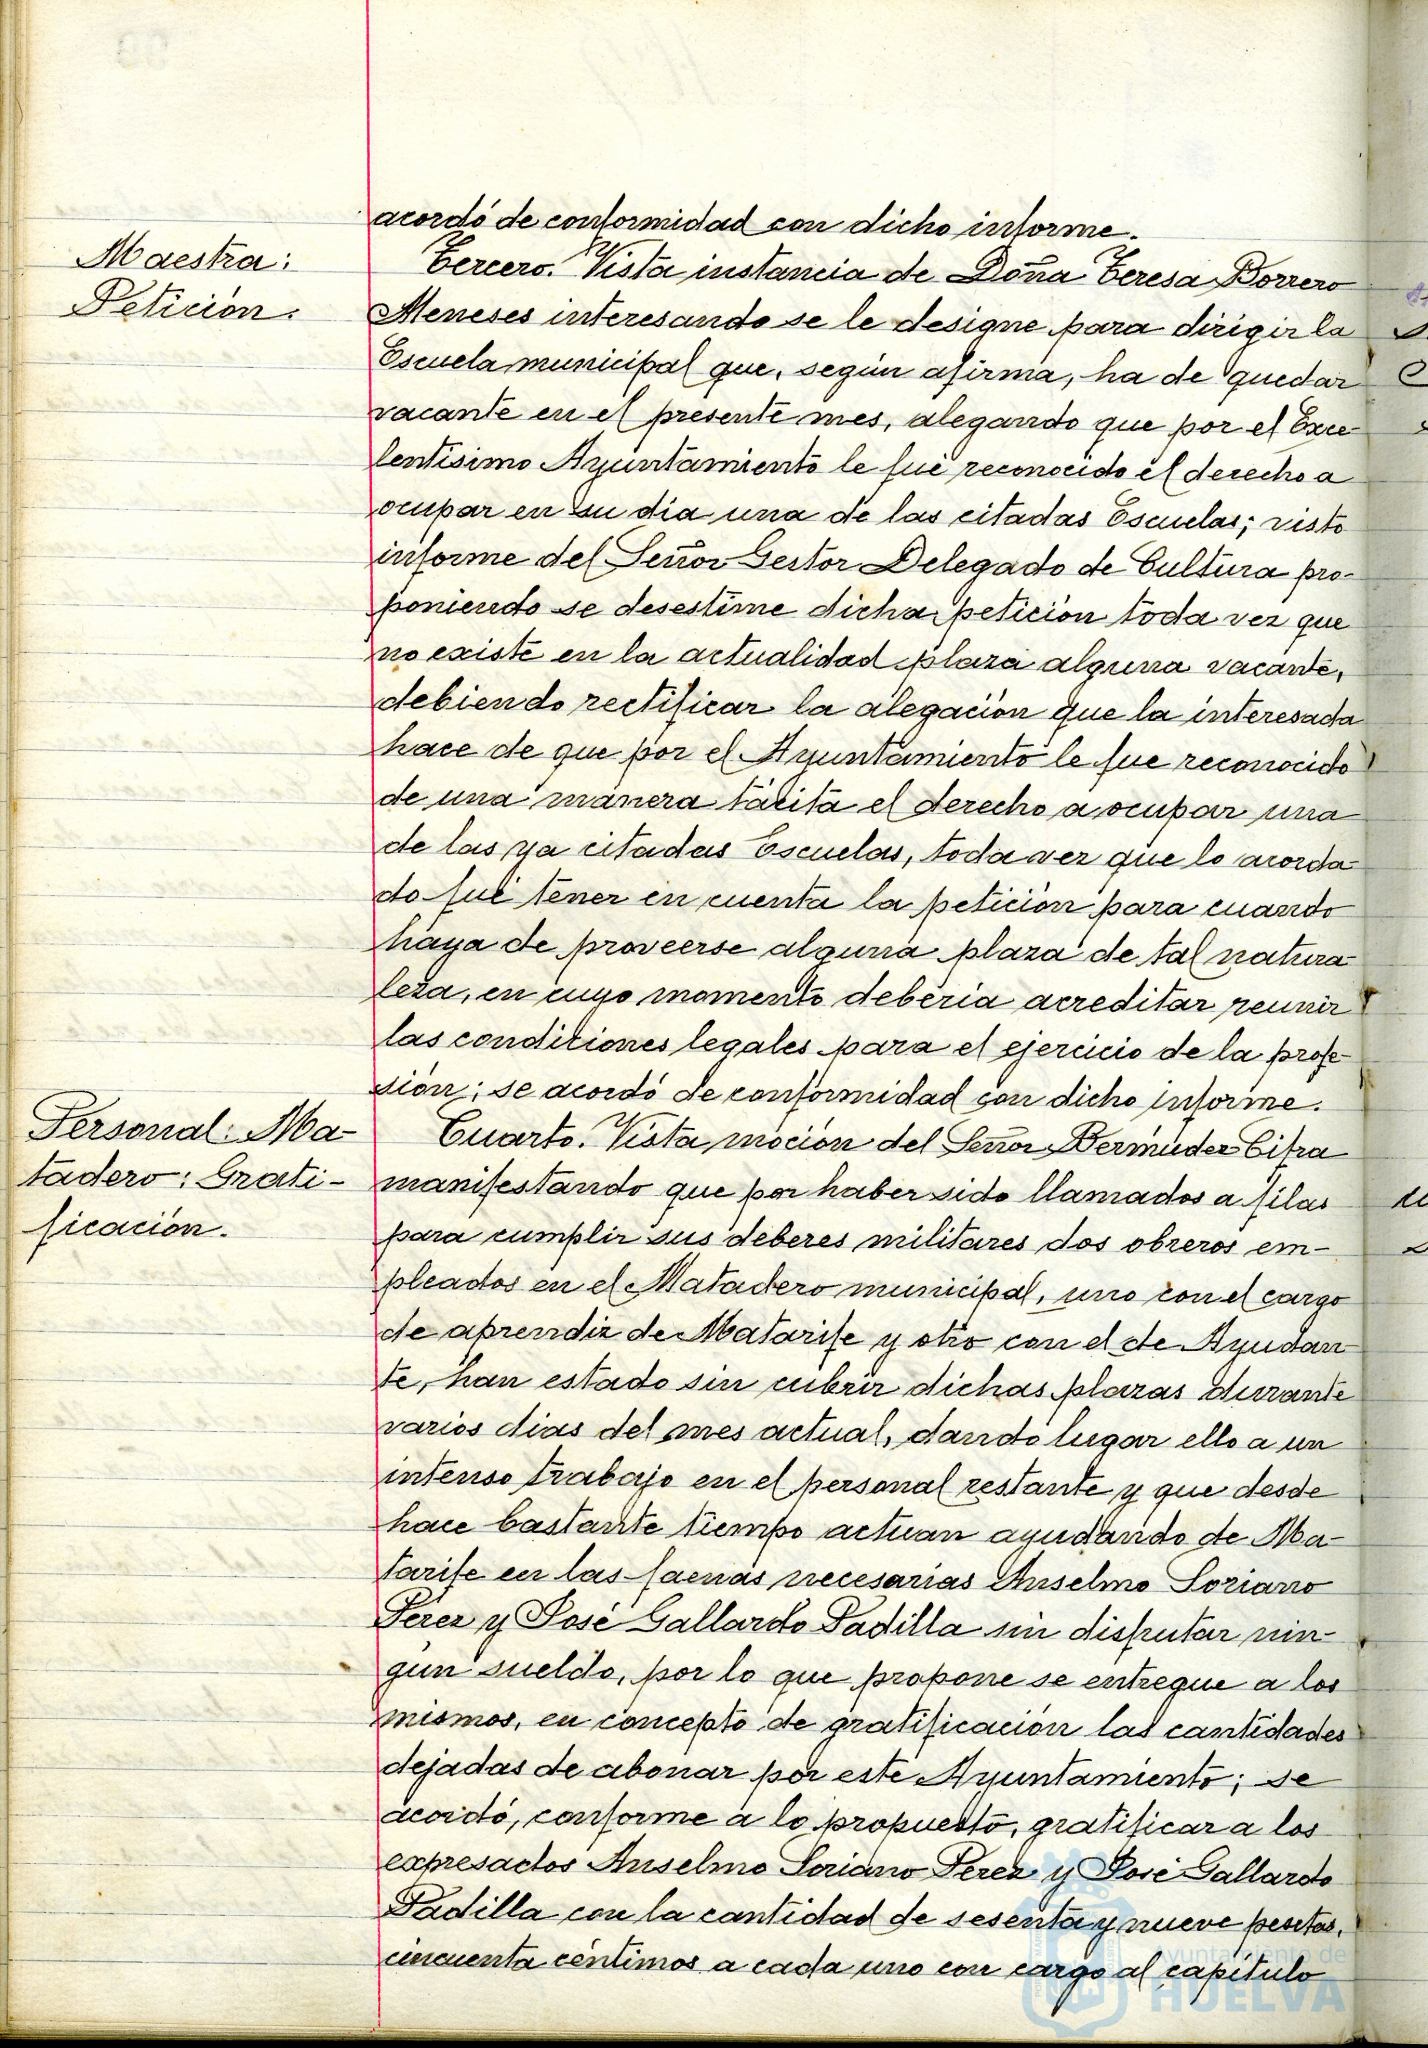 acordó de conformidad con dicho informe.
Maestra:
Petición.
Tercero. Vista instancia de Doña Teresa Borrero
Meneses interesando se le designe para dirigir la
Escuela municipal que, según afirma, ha de quedar
vacante en el presente mes, alegando que por el Exce-
lentísimo Ayuntamiento le fué reconocido el derecho a
ocupar en su día una de las citadas Escuelas; visto
informe del Señor Gestor Delegado de Cultura pro-
poniendo se desestime dicha petición toda vez que
no existe en la actualidad plaza alguna vacante,
debiendo rectificar la alegación que la interesada
hace de que por el Ayuntamiento le fue reconocido
de una manera tácita el derecho a ocupar una
de las ya citadas Escuelas, toda vez que lo acorda-
do fué tener en cuenta la petición para cuando
haya de proveerse alguna plaza de tal natura-
leza, en cuyo momento debería acreditar reunir
las condiciones legales para el ejercicio de la profe-
sión; se acordó de conformidad con dicho informe.
Personal: Ma-
tadero: Grati-
ficación.
Cuarto. Vista moción del Señor Bermúdez Cifra
manifestando que por haber sido llamados a filas
para cumplir sus deberes militares dos obreros em-
pleados en el Matadero municipal, uno con el cargo
de aprendiz de Matarife y otro con el de Ayudan-
te, han estado sin cubrir dichas plazas durante
varios dias del mes actual, dando lugar ello a un
intenso trabajo en el personal restante y que desde
hace bastante tiempo actuan ayudando de Ma-
tarife en las faenas necesarias Anselmo Soriano
Pérez y José Gallardo Padilla sin disfrutar nin-
gún sueldo, por lo que propone se entregue a los
mismos, en concepto de gratificación las cantidades
dejadas de abonar por este Ayuntamiento; se
acordó, conforme a lo propuesto, gratificar a los
expresados Anselmo Soriano Perez y José Gallardo
Padilla con la cantidad de sesenta y nueve pesetas,
cincuenta céntimos a cada uno con cargo al capítulo
Ayuntamiento de
HUELVA